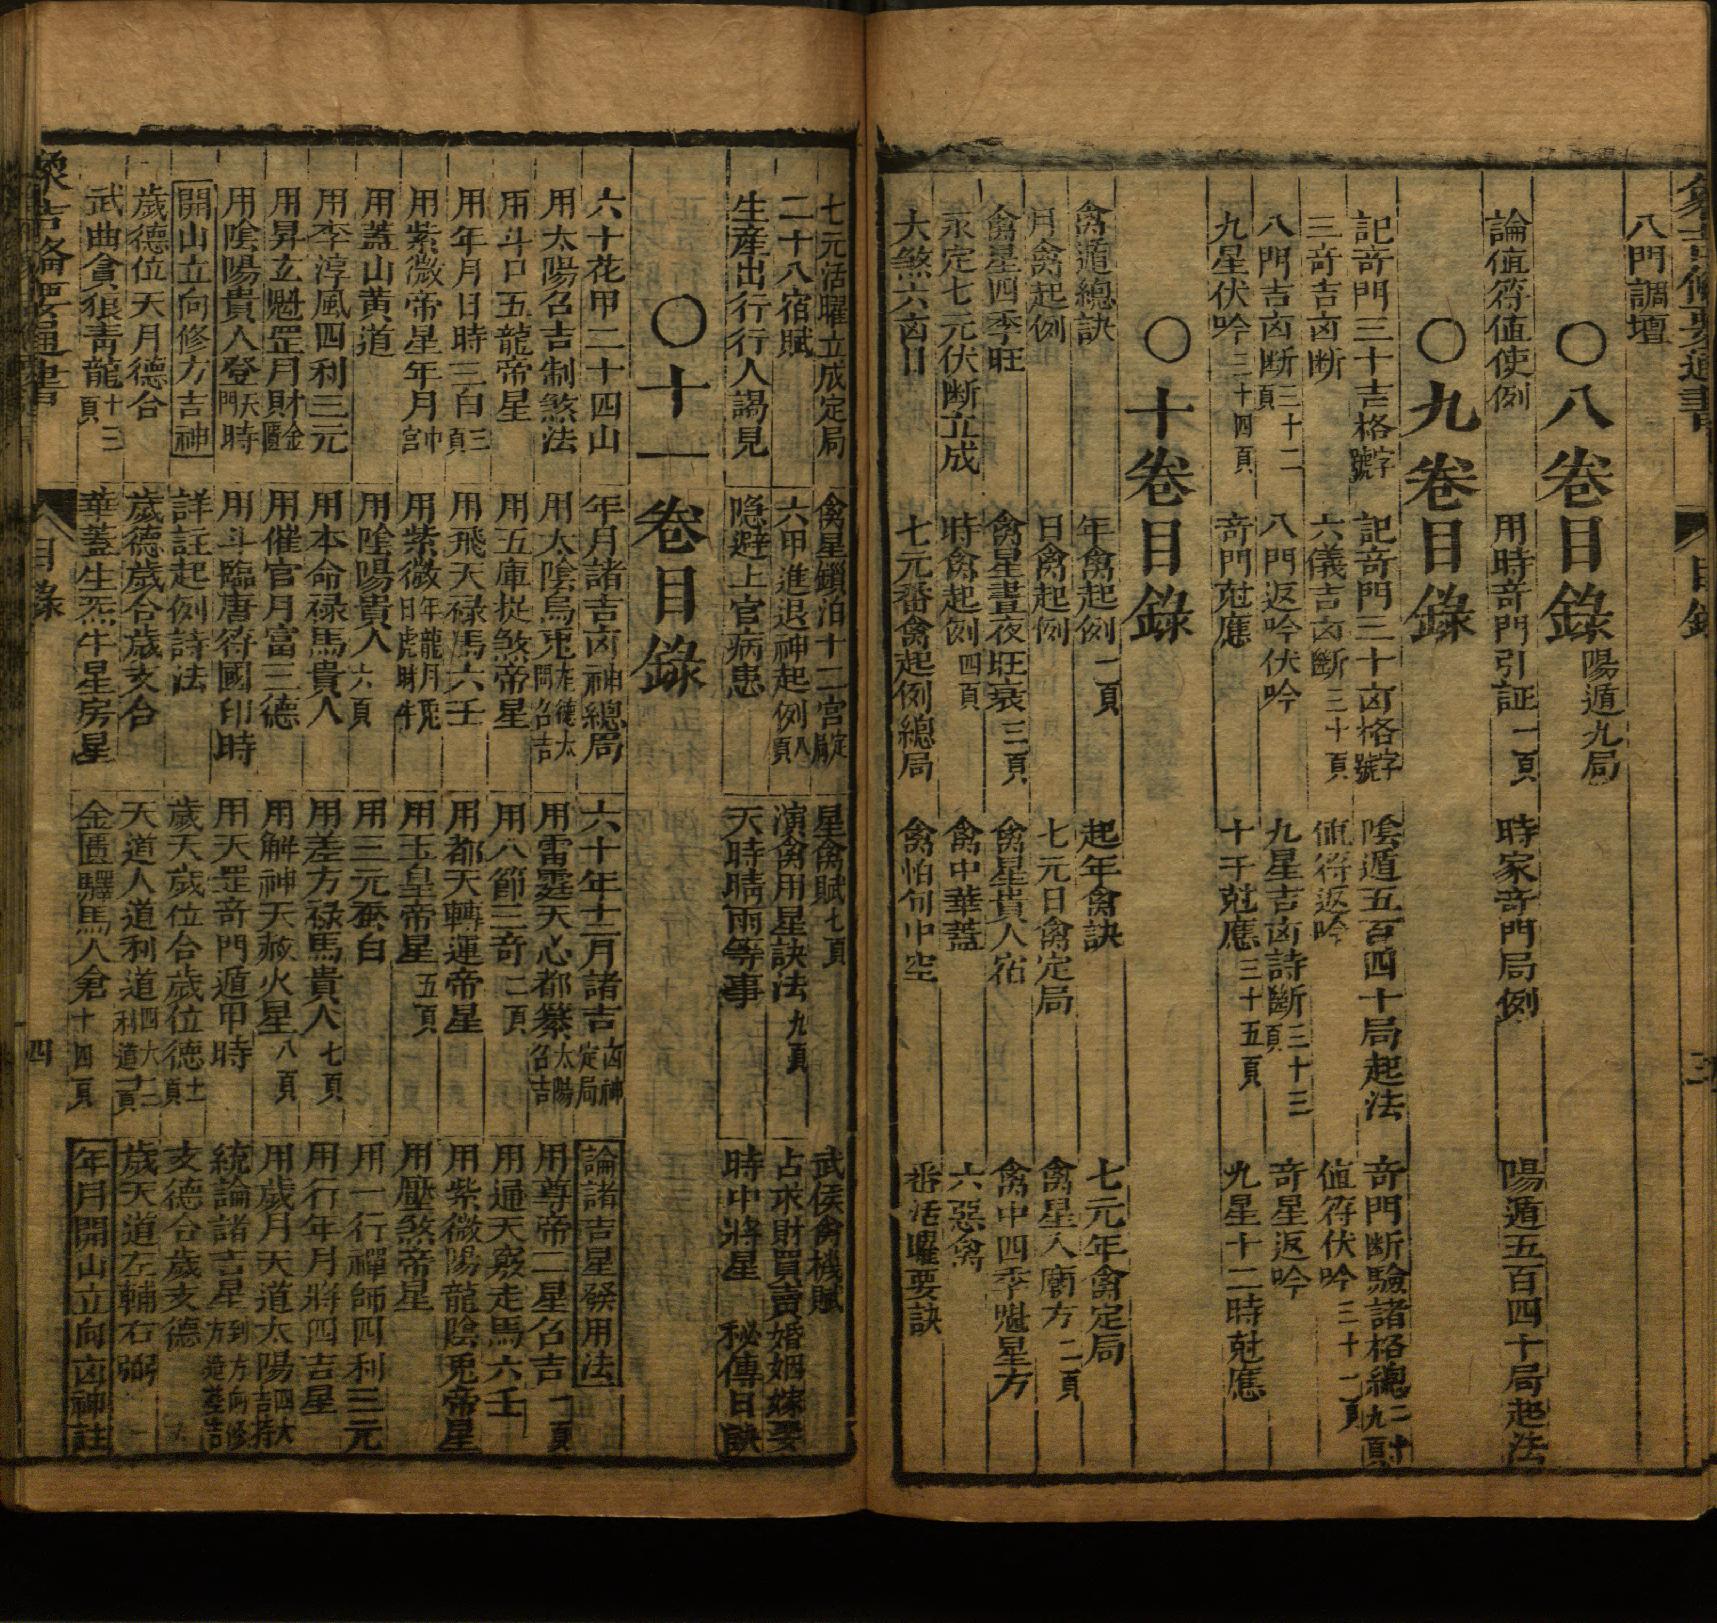 八門調壇
○八卷目錄 陽遁九局
論值符值使例 用時竒門引証 一頁 時家竒門局例 陽遁五百四十局起法
○九卷目錄
記竒門三十吉格字號 記竒門三十凶格字號 陰遁五百四十局起法 竒門断驗諸格總
三竒吉凶断 六儀吉凶斷 三十頁 值符返吟 值符伏吟 三十一頁
八門吉凶断 三十二頁 八門返吟伏吟 九星吉凶詩斷 三十三頁 竒星返吟
九星伏吟 三十四頁 竒門尅應 十干尅應 三十五頁 九星十二時尅應
○十卷目錄
禽遁總訣 年禽起例 一頁 起年禽訣 七元年禽定局
月禽起例 日禽起例 七元日禽定局 禽星入廟方 二頁
禽星四季旺 禽星晝夜旺衰 三頁 禽星貴人宿 禽中四季魁星方
永定七元伏断立成 時禽起例 四頁 禽中華蓋 六惡禽
大煞六凶日 七元番禽起例總局 禽怕旬中空 番活曜要訣
七元活曜立成定局 禽星鎖泊十二宮定局 星禽賦 七頁 武侯禽機賦
二十八宿賦 六甲進退神起例 八頁 演禽用星訣法 九頁 占求財買賣婚姻嫁娶
生産出行行人謁見 隐避上官病患 天時晴雨等事 時中將星 秘傳日訣
○十一卷目錄
六十花甲二十四山 年月諸吉凶神總局 六十年十二月諸吉凶神定局 論諸吉星發用法
用太陽召吉制煞法 用太陰烏兎 用雷霆天心都纂太陽召吉 用尊帝二星召吉 一頁
用斗口五龍帝星 用五庫捉煞帝星 用八節三竒 二頁 用通天竅走馬六壬
用年月日時三白 三頁 用飛天禄馬六壬 用都天轉運帝星 用紫微陽龍陰兎帝星
用紫微帝星年月 用紫微年龍月兎日虎時牛 用玉皇帝星 五頁 用壓煞帝星
用蓋山黄道 用陰陽貴人 六頁 用三元紫白 用一行禪師四利三元
用李淳風四利三元 用本命禄馬貴人 用差方禄馬貴人 七頁 用行年月將四吉星
用昇玄魁罡月財金匱 用催官月富三德 用解神天赦火星 八頁 用歲月天道太陽
用陰陽貴人登天門時 用斗臨唐符國印時 用天罡竒門遁甲時 統論諸吉星到方
開山立向修方吉神 詳註起例詩法 歲天歲位合歲位德 十一頁 支德合歲支德
歲德位天月德合 歲德歲合歲支合 天道人道利道 歲天道左輔右弼
武曲貪狼青龍 十三頁 華蓋生炁牛星房星 金匱驛馬人倉 十四頁 年月開山立向凶神註
目錄
四